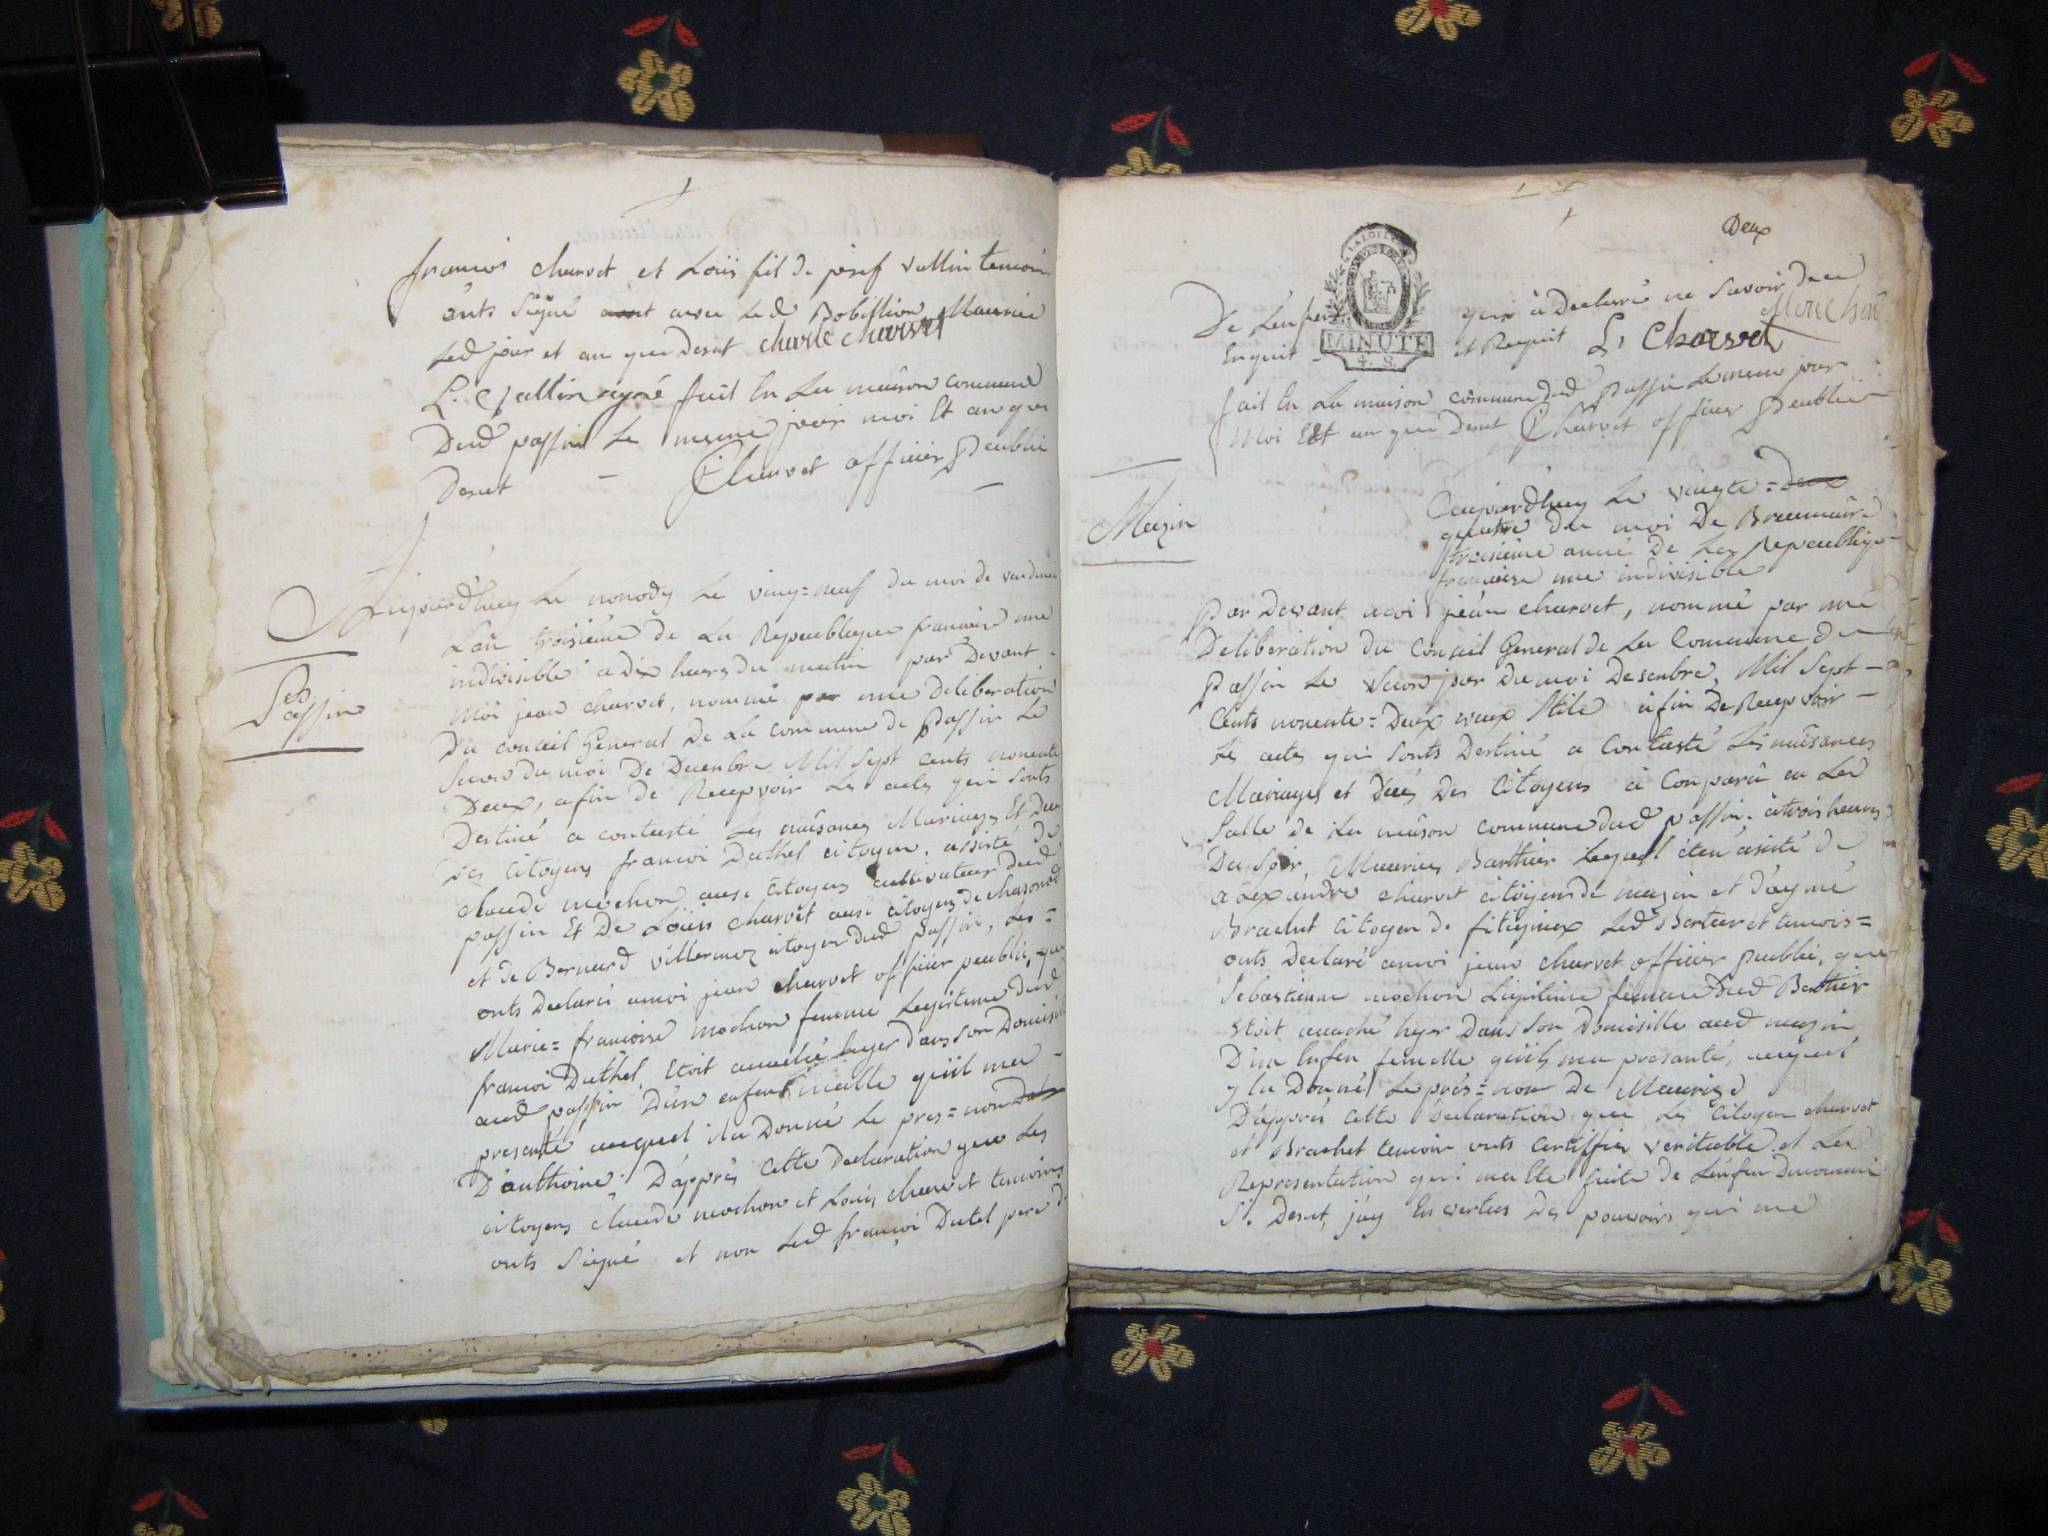 françois charvet et Loüis fil de josef vallin temoin
onts Signé avec Led Bobillion Maurice
Led jour et an que Desut charle charvet
L. vallin signé fait En La maison commune
Dud passin Le meme jour moi Et an que
Desut - Charvet officier Peublic
Aujourd'huy Le nonody Le vingt=neuf du moi de vendemi
L'an troisieme de La Republique francoise une
indivisible a dix heurs du matin par Devant
Moi jean charvet, nommé par une Deliberation
Du conceil General De La commune de passin Le
Second du moi De Decenbre Mil Sept cents nonente
Deux, afin de Recepvoir Les actes qui Sonts
Destiné a contasté Les naisances Mariages Et Deces
Des Citoyens françoi Duthel citoyen, assisté de
claude mochon ausi citoyen cultivateur dud
passin Et De Loüis charvet ausi citoyens de chasonod
et de Bernard villermoz citoyen dud passin, Les=
onts Declarés amoi jean charvet officier peublic, que
Marie=francoise mochon femme Legistime dud
françoi Duthel, Etoit acuché hyer Dans son Domicill
aud passin D'un enfent maille quil ma
presenté auquel ila Donné Le pres=non
D'anthoine. D'apprés Cette Declaration que Les
citoyens claude mochon et Louis charvet temoins
onts Siegné et non Led françoi Dutel pere d
Passin
Deux
De L'enfen qui à Declaré ne Savoir De ce
Enquit et Requit L, Charvet Mochon
LA LOI
MINUTE
4. S.
fait En La maison commune dud Passin Le meme jour
Moi Et an que Desut Charvet officier Peublic
Mazin
Aujourd'huy Le vingte=Deux
quatre du moi De Brumaire
troisieme année de La Republique
francoise une indivisible
Par Devant moi jean charvet, nommé par une
Deliberation du Conceil General de La Commune de
Passin Le Second jour du moi Desenbre, Mil Sept
Cents nonente=Deux vieux Stile afin De Recepvoir
Les actes qui Sonts Destiné a Contasté Les naisances
Mariages et Déces Des Citoyens à Conparu en La
Salle de La maison commune dud passin, à trois heures
Du Soir, Maurice Barthier Lequel éten asisté de
alexandre charvet citoyen de mazin et d'aymé
Brachet Citoyen de fitignieux Led Bertier et temois=
onts Declaré amoi jean charvet officier Peublic, que
Sebastienne mochon Ligitime femme dud Berthier
Etoit acuché hyer Dans Son Domisille aud mazin
D'un Enfen femelle quil ma presanté, auquel
y la Donné Le prés=non de Maurize
D'apprés Cette Declaration que Les Citoyen charvet
et Brachet temoin onts Certiffier veritable et La
Representation qui ma Eté faite de L'enfen Denommé
Si Desut, j'ay En vertus Des pouvoirs qui me